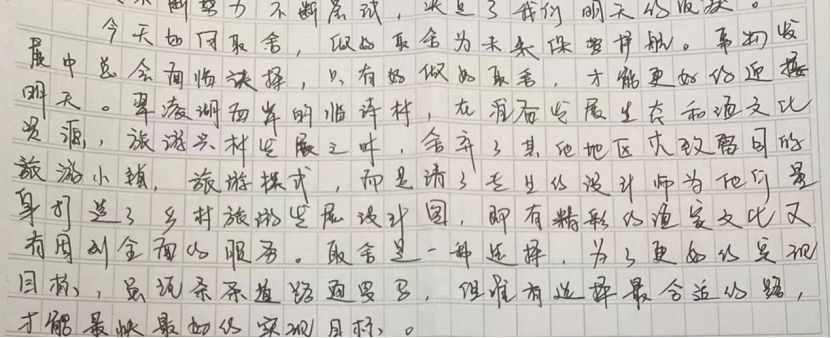 不断努力不断尝试，决定了我们明天的收获。
今天如何取舍，做好取舍为未来保驾护航。事物发
展中总会面临抉择，只有好做好取舍，才能更好的迎接
明天。翠凌湖西岸的临浒村，在涯而发展生态和渔文化
资源，旅游兴村发展之时，舍弃了其他地区大致雷同的
旅游小镇，旅游模式，而是请了专业的设计师为他们量
身打造了乡村旅游发展设计图，即有精彩的渔家文化又
有周到全面的服务。取舍是一种选择，为了更好的实现
目标，虽说条条道路通罗马，但唯有选择最合适的路，
才能最快最好的实现目标。